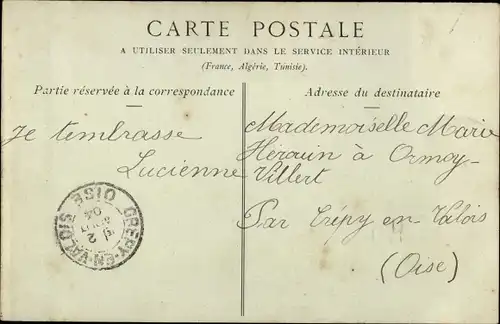 CARTE POSTALE
A UTILISER SEULEMENT DANS LE SERVICE INTÉRIEUR
(France, Algérie, Tunisie).
Partie réservée à la correspondance
Adresse du destinataire
Je tembrasse
Lucienne
Mademoiselle Marie
Hérouin à Ormoy-
Villert
Par Crépy en-Valois
(Oise)
CRÉPY-EN-VALOIS
OISE
2
04